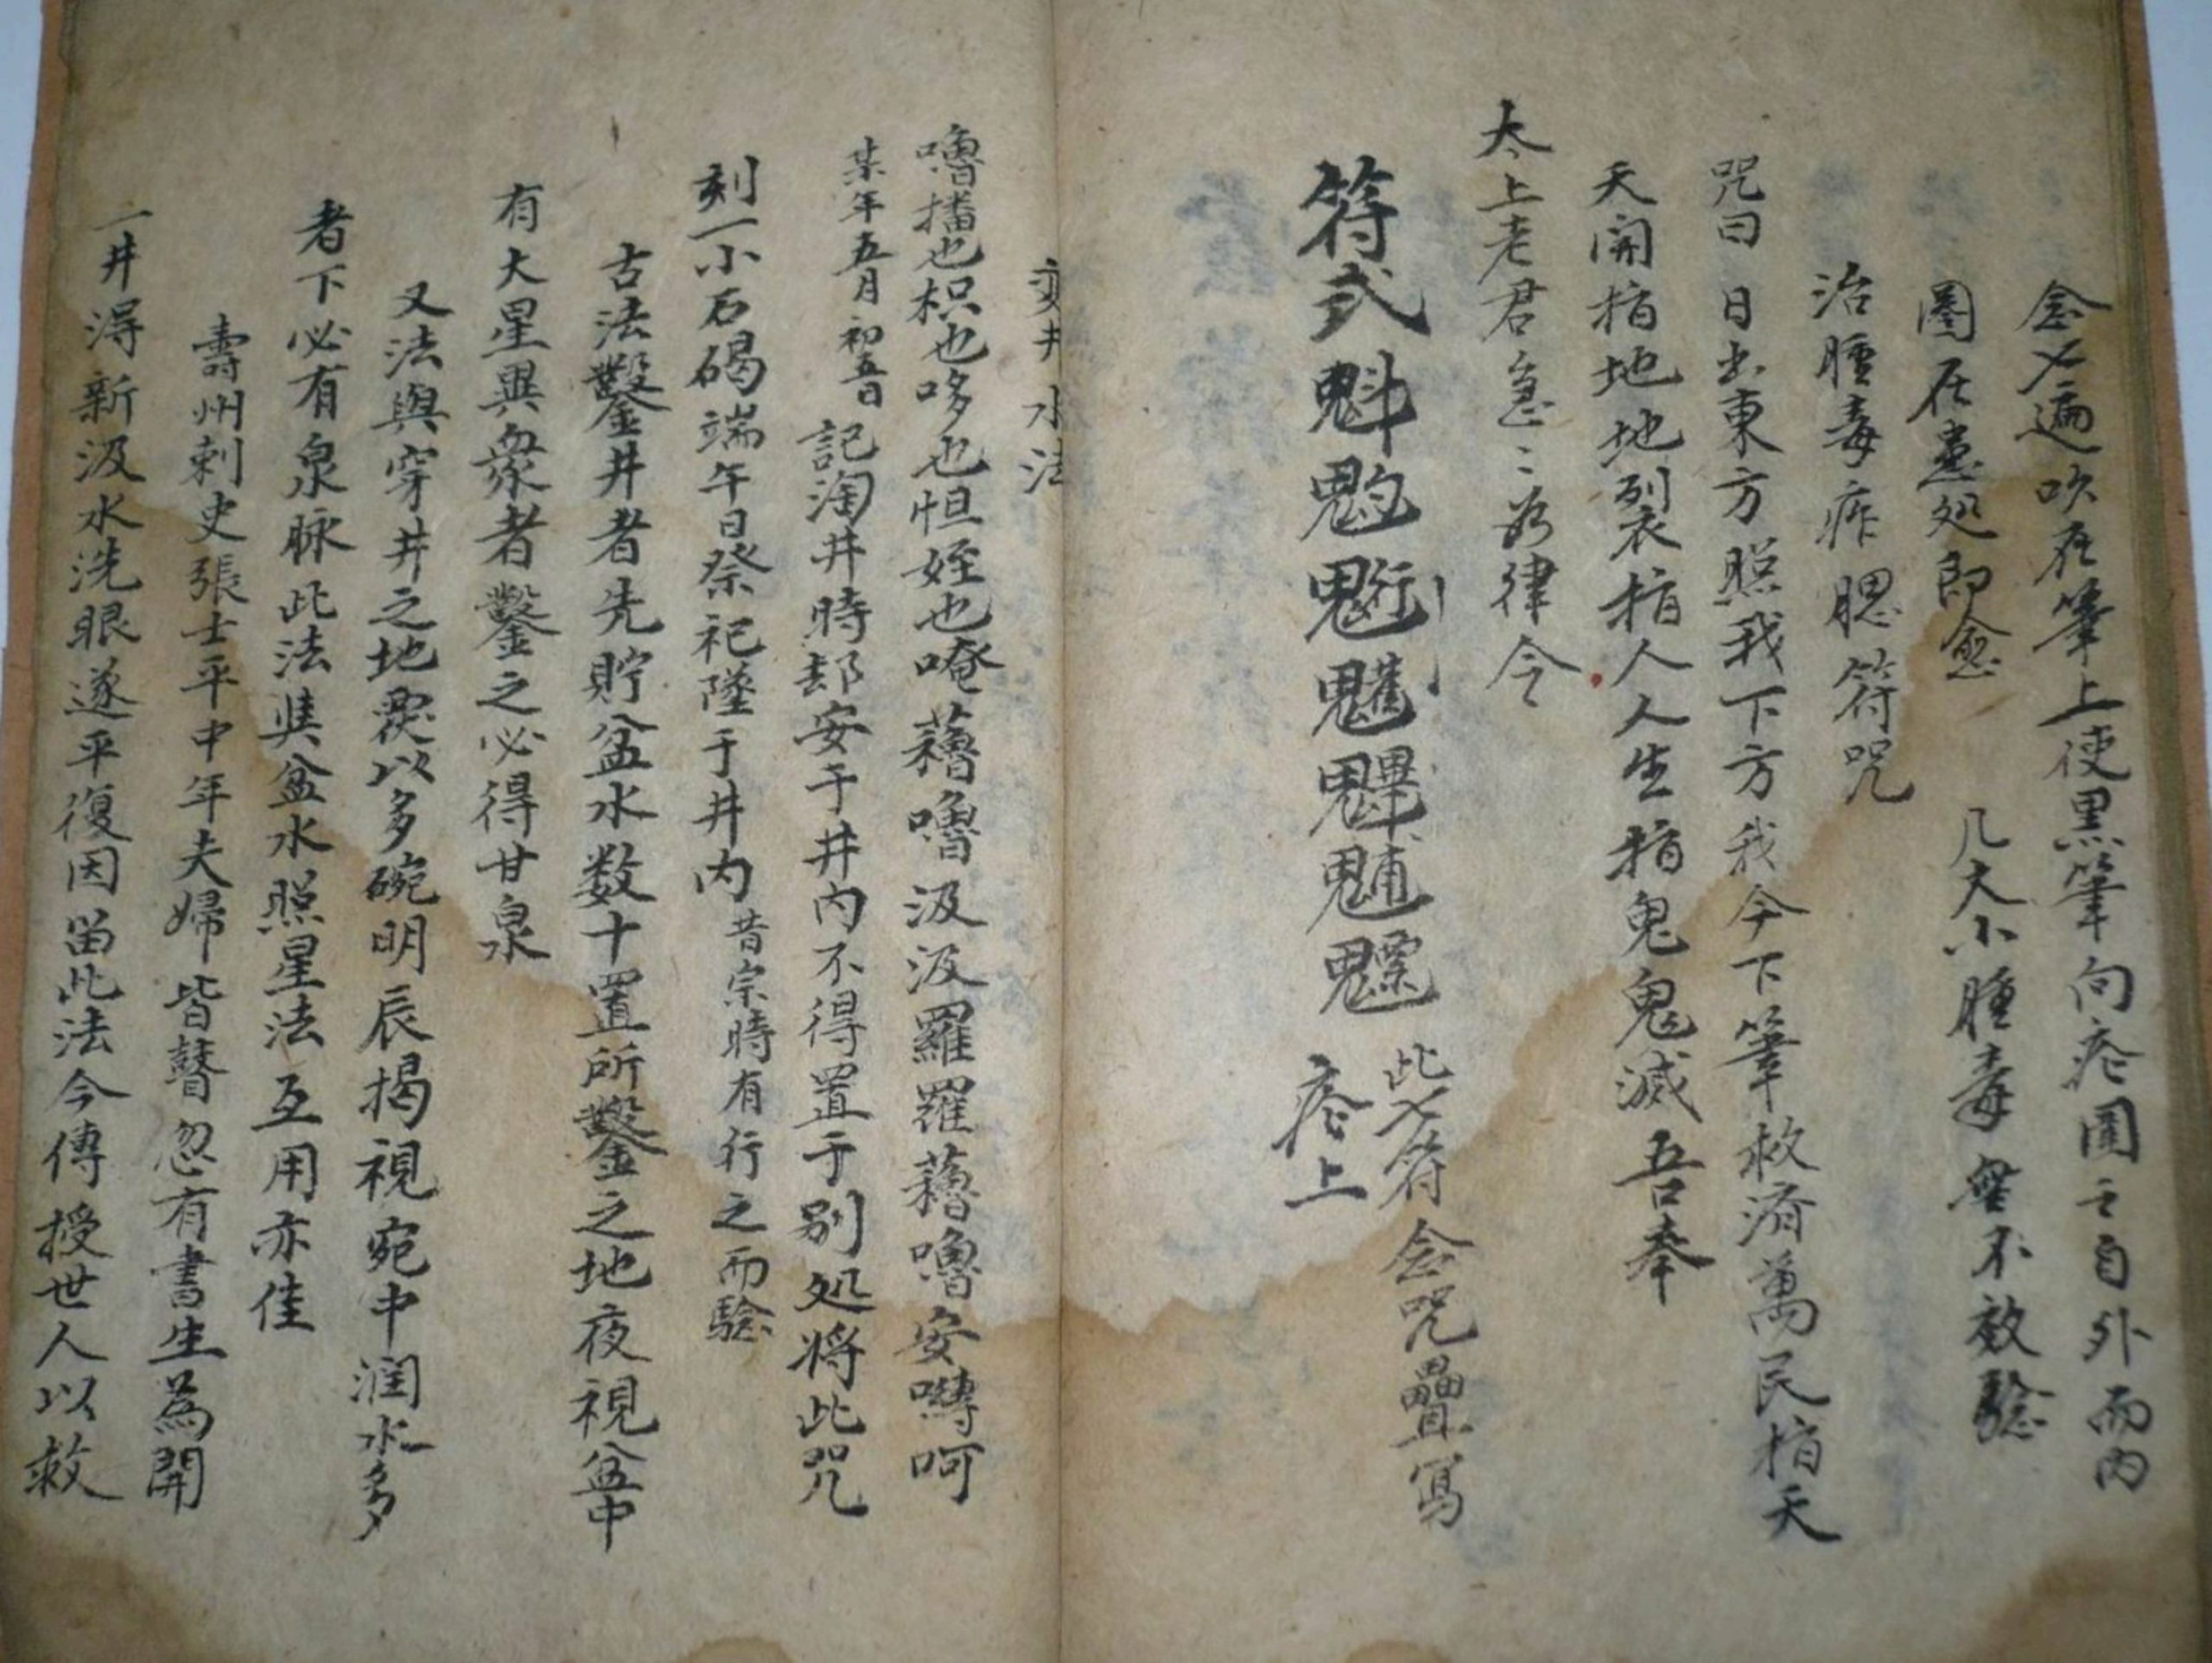 念七遍吹在筆上使黑筆向疮圍之自外而內
圈在患処即愈　凢大小腫毒無不效驗
治腫毒痄腮符咒
咒曰　日出東方照我下方我今下筆救濟萬民指天
天開指地地裂指人人生指鬼鬼滅吾奉
太上老君急〻如律令
符式魁魀䰢魓魒此七符念咒疊寫
疮上
变井水法
嚕播也枳也哆也怛姪也唵蘓嚕汲汲羅羅蘓嚕安囀呵
某年五月初五日記淘井時却安于井內不得置于別処将此咒
刻一小石碣端午日祭祀墜于井內昔宗時有行之而驗
古法鑿井者先貯盆水数十置所鑿之地夜視盆中
有大星異衆者鑿之必得甘泉
又法與穿井之地覆以多碗明辰揭視宛中润水多
者下必有泉脉此法與盆水照星法互用亦佳
壽州刺史張士平中年夫婦皆瞽忽有書生為開
一井淂新汲水洗眼遂平復因畄此法今傳授世人以救